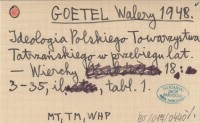 GOETEL Walery 1948.
Ideologia Polskiego Towarzystwa
Tatrzańskiego w przebiegu lat
— Wierchy 18:
3-35, il., tabl. 1.
MT, TM, WHP